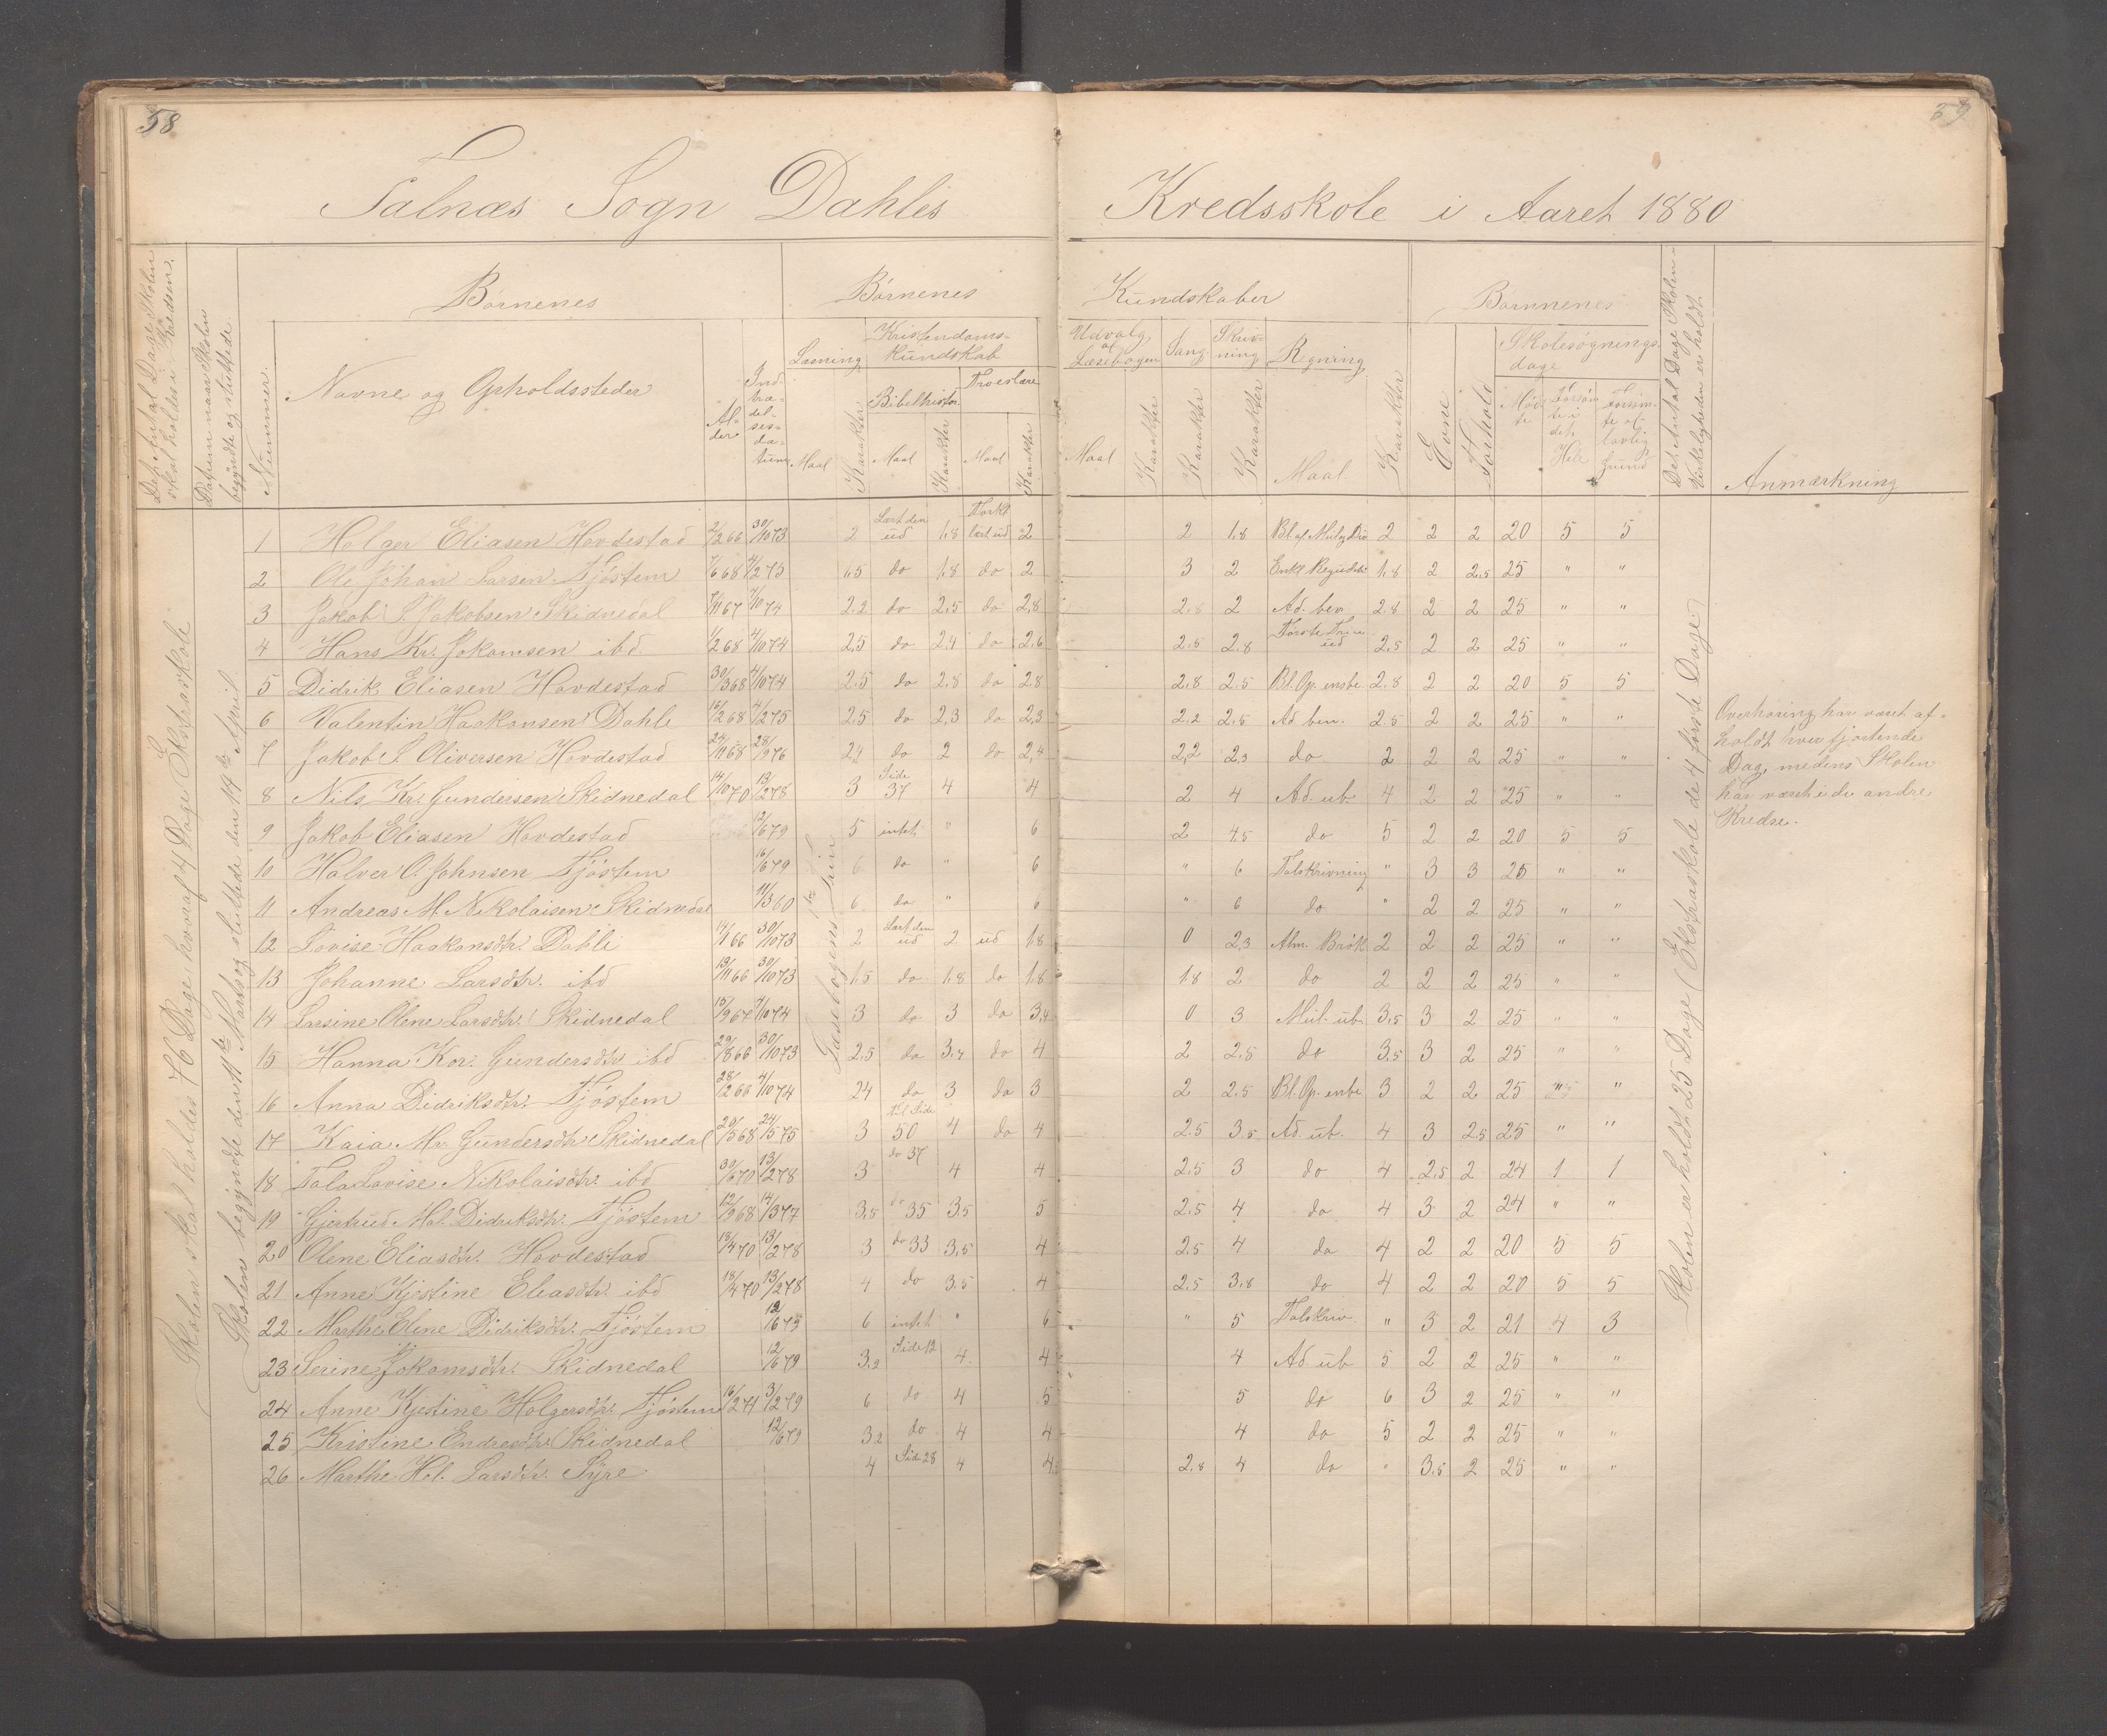 58
59
Falnæs Sogn Dahles Kredsskole i Aaret 1880
Det Antal Dage Skolen skal holdes i Kredsen.
Datum naar Skolen begyndte og sluttede
Nummer.
Børnenes
Navne og Opholdssteder
Alder
Indtrædelsesdatum
Børnenes Kundskaber
Læsning
Maal
Karakter
Kristendomskundskab
Bibelhistor.
Maal
Karakter
Troeslære
Maal
Karakter
Udvalg af Læsebogen
Maal
Karakter
Sang
Karakter
Skrivning
Karakter
Regning
Maal
Karakter
Børnenes
Evne
Forhold
Skolesøgningsdage
Mødte
Forsømte i det Hele
Forsømte af lovlig Grund
Det Antal Dage Skolen i Virkeligheden er holdt.
Anmærkning
Skolen skal holdes 76 Dage, hvoraf 4 Dage Ekstraskole
Skolen begyndte den 11te Marts og sluttede den 14de April
Læsebogens 1ste Trin
Skolen er holdt 25 Dage (Ekstraskole de 4 første Dage)
1 Holger Eliasen Hovdestad 2/2 66 30/10 73 2 Lært den ud 1,8 Forkl lært ud 2 2 1,8 2 2 2 20 5 5
2 Ole Johan Larsen Tjøstem 7/6 68 4/2 75 1,5 do 1,8 do 2 3 2 1,8 2 2,5 25 " "
3 Jakob S. Jakobsen Skidnedal 7/11 67 7/10 74 2,2 do 2,5 do 2,8 2,8 2 Ad. ben 2,8 2 2 25 " "
4 Hans Kr. Jokamsen ibd 1/2 68 4/10 74 2,5 do 2,4 do 2,6 2,5 2,8 2,5 2 2 25 " "
5 Didrik Eliasen Hovdestad 30/3 68 4/10 74 2,5 do 2,8 do 2,8 2,8 2,5 Bl. Op. ensbe. 2,8 2 2 20 5 5
6 Valentin Haakonsen Dahle 16/2 68 4/2 75 2,5 do 2,3 do 2,3 2,2 2,5 Ad ben. 2,5 2 2 25 " "
7 Jakob S. Oliversen Hovdestad 24/11 68 28/9 76 2,4 do 2 do 2,4 2,2 2,3 do 2 2 2 25 " "
8 Nils Kr. Gundersen Skidnedal 14/10 70 13/2 78 3 Side 37 4 4 2 4 Ad. ub. 4 2 2 25 " "
9 Jakob Eliasen Hovdestad 12/6 79 5 intet " 6 2 4,5 do 5 2 2 20 5 5
10 Halver O. Johnsen Tjøstem 16/6 79 6 do " 6 " 6 Talskrivning " 3 3 25 " "
11 Andreas M. Nikolaisen Skidnedal 11/3 60 6 do " 6 " 6 do " 2 2 25 " "
12 Lovise Haakonsdtr. Dahle 14/1 66 30/10 73 2 Lært den ud 2 ud 1,8 0 2,3 Alm. Brøk 2 2 2 25 " "
13 Johanne Larsdtr. ibd 13/11 66 30/10 73 1,5 do 1,8 do 1,8 1,8 2 do 2 2 2 25 " "
14 Larsine Olene Larsdtr. Skidnedal 15/9 67 7/10 74 3 do 3 do 3,4 0 3 Mul. ub. 3,5 3 2 25 " "
15 Hanna Kor. Gundersdtr. ibd 29/8 66 30/10 73 2,5 do do 4 2 2,8 do 3,5 3 2 25 " "
16 Anna Didriksdtr. Tjøstem 28/12 66 4/10 74 2,4 do 3 do 3 2 2,5 Bl. Op. enbe 3 2 2 25 "
17 Kaia Mr. Gundersdtr. Skidnedal 20/5 68 24/5 75 3 til Side 50 4 do 4 2,5 3,5 Ad. ub. 4 3 2,5 25 " "
18 Tala Lovise Nikolaisdtr. ibd 30/6 70 13/2 78 3 do 37 4 4 2,5 3 do 4 2,5 2 24 1 1
19 Gjertrud Mal. Didriksdtr. Tjøstem 12/9 68 14/3 77 3,5 do 35 3,5 5 2,5 4 do 4 3 2 24 " "
20 Olene Eliasdtr. Hovdestad 18/4 70 13/2 78 3 do 33 3,5 4 2,5 4 do 4 2 2 20 5 5
21 Anne Kjestine Eliasdtr. ibd 18/4 70 13/2 78 4 do 3,5 4 2,5 3,8 do 4 2 2 20 5 5
22 Marthe Elene Didriksdtr. Tjøstem 12/6 79 6 intet " 6 " 5 Talskriv. " 3 2 21 4 3
23 Serine Jokamsdtr. Skidnedal 12/6 79 3,2 Side 12 4 4 4 Ad. ub 5 2 2 25 " "
24 Anne Kjestine Holgersdtr. Tjøstem 16/2 71 3/2 79 6 do 4 5 5 do 6 3 2 25 " "
25 Kristine Endresdtr. Skidnedal 12/6 79 3,2 do 4 4 4 do 5 2 2 25 " "
26 Marthe Hel. Larsdtr. Syre 4 Side 28 4 4 2,8 4 do " 3,5 2 25 " "
Overhøring har været af-
holdt hver fjortende
Dag, medens Skolen
har været i de andre
Kredse.